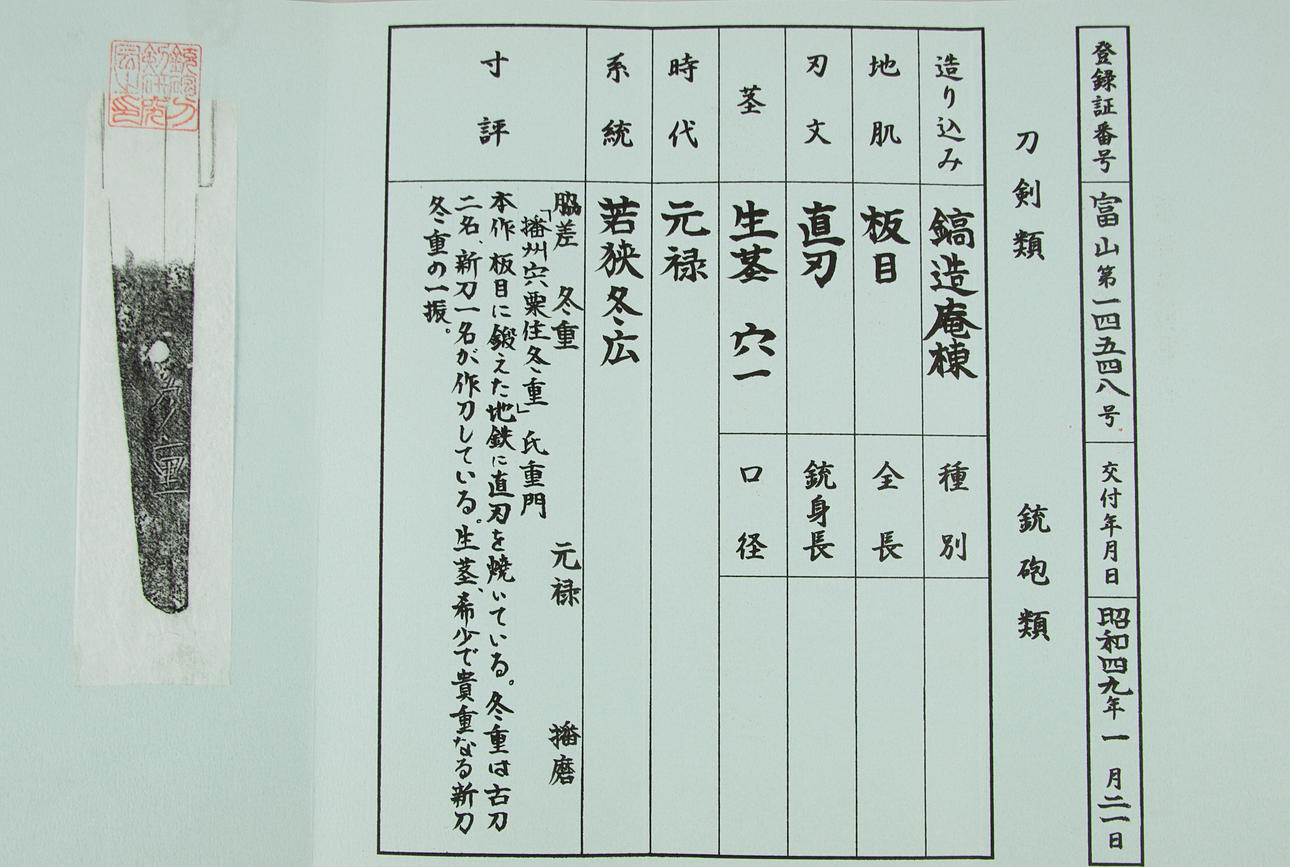 登録証番号 富山第一四五四八号 交付年月日 昭和四九年一月二一日
刀剣類 銃砲類
造り込み 鎬造庵棟 種別
地肌 板目 全長
刃文 直刃 銃身長
茎 生茎 穴一 口径
時代 元禄
系統 若狭冬広
寸評
脇差 冬重 元禄 播磨
「播州宍粟住冬重」 氏重門
本作 板目に鍛えた地鉄に直刃を焼いている。冬重は古刀
二名、新刀一名が作刀している。生茎、希少で貴重なる新刀
冬重の一振。
冬重